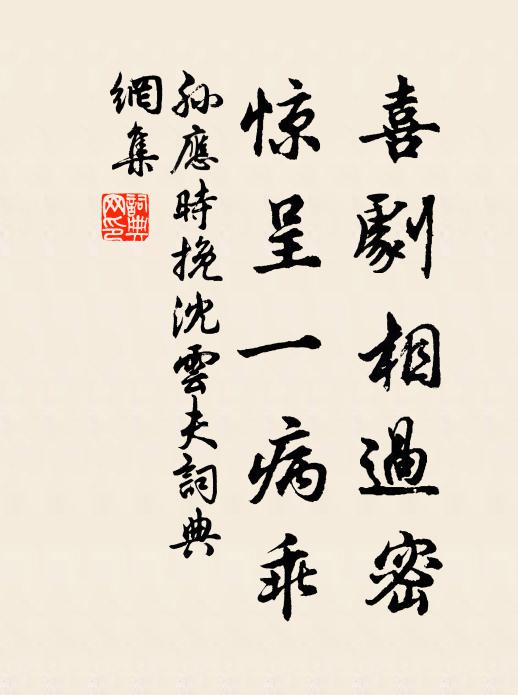 喜劇相過密
惊呈一病乖
孙應時挽沈雲夫詞典
網集
詞典网印